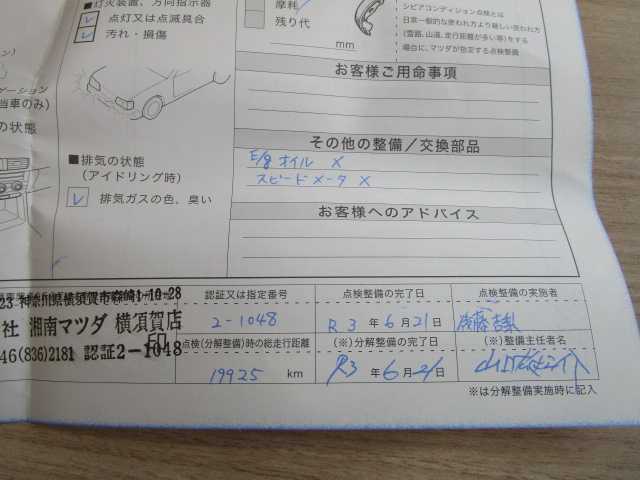 ■灯火装置、方向指示器
点灯又は点滅具合
汚れ・損傷
当車のみ)
の状態
■排気の状態
(アイドリング時)
排気ガスの色、臭い
摩耗
残り代
mm
シビアコンディション点検とは
日常一般的な使われ方より厳しい使われ方
(雪路、山道、走行距離が多い等)をする
場合に、マツダが指定する点検整備
お客様ご用命事項
その他の整備/交換部品
E/g オイル ×
スピードメータ ×
お客様へのアドバイス
23 神奈川県横須賀市森崎1-10-28
社 湘南マツダ 横須賀店
46(836)2181 認証2-1048
認証又は指定番号
2-1048
点検(分解整備)時の総走行距離
19925 km
点検整備の完了日
R3 年 6 月 21 日
(※)分解整備の完了日
R3 年 6 月 21 日
点検整備の実施者
(※)整備主任者名
※は分解整備実施時に記入